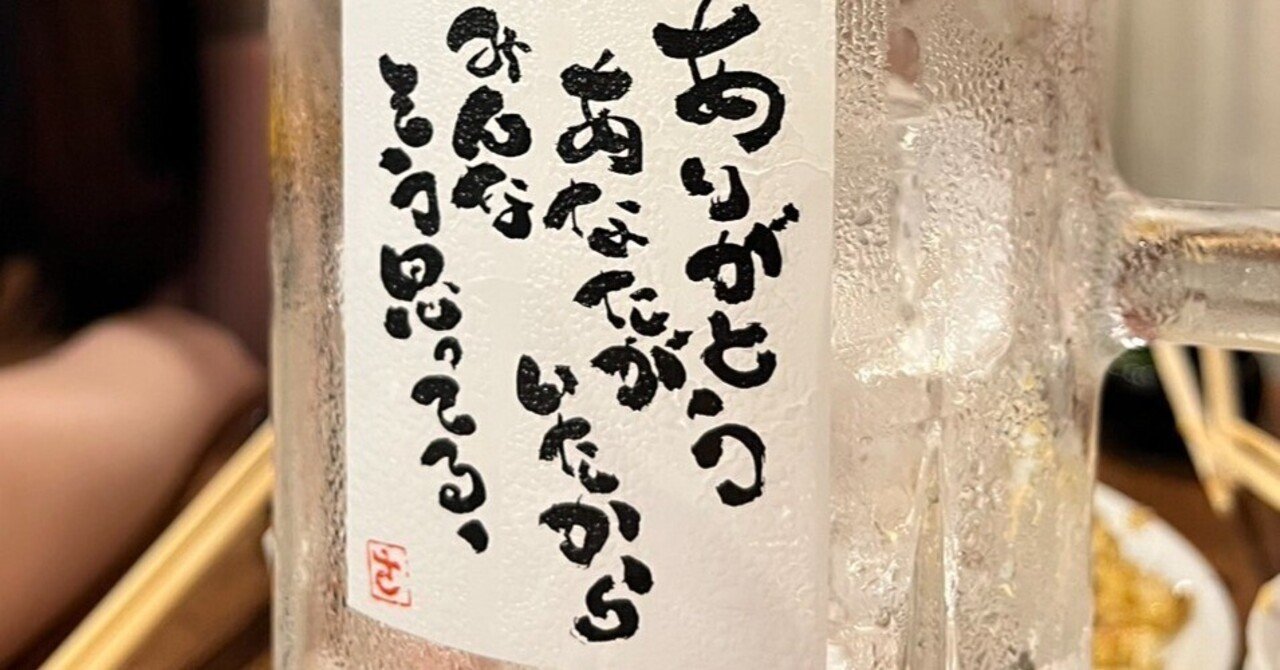 ありがとう
あなたが
いたから
みんな
そう思ってるよ